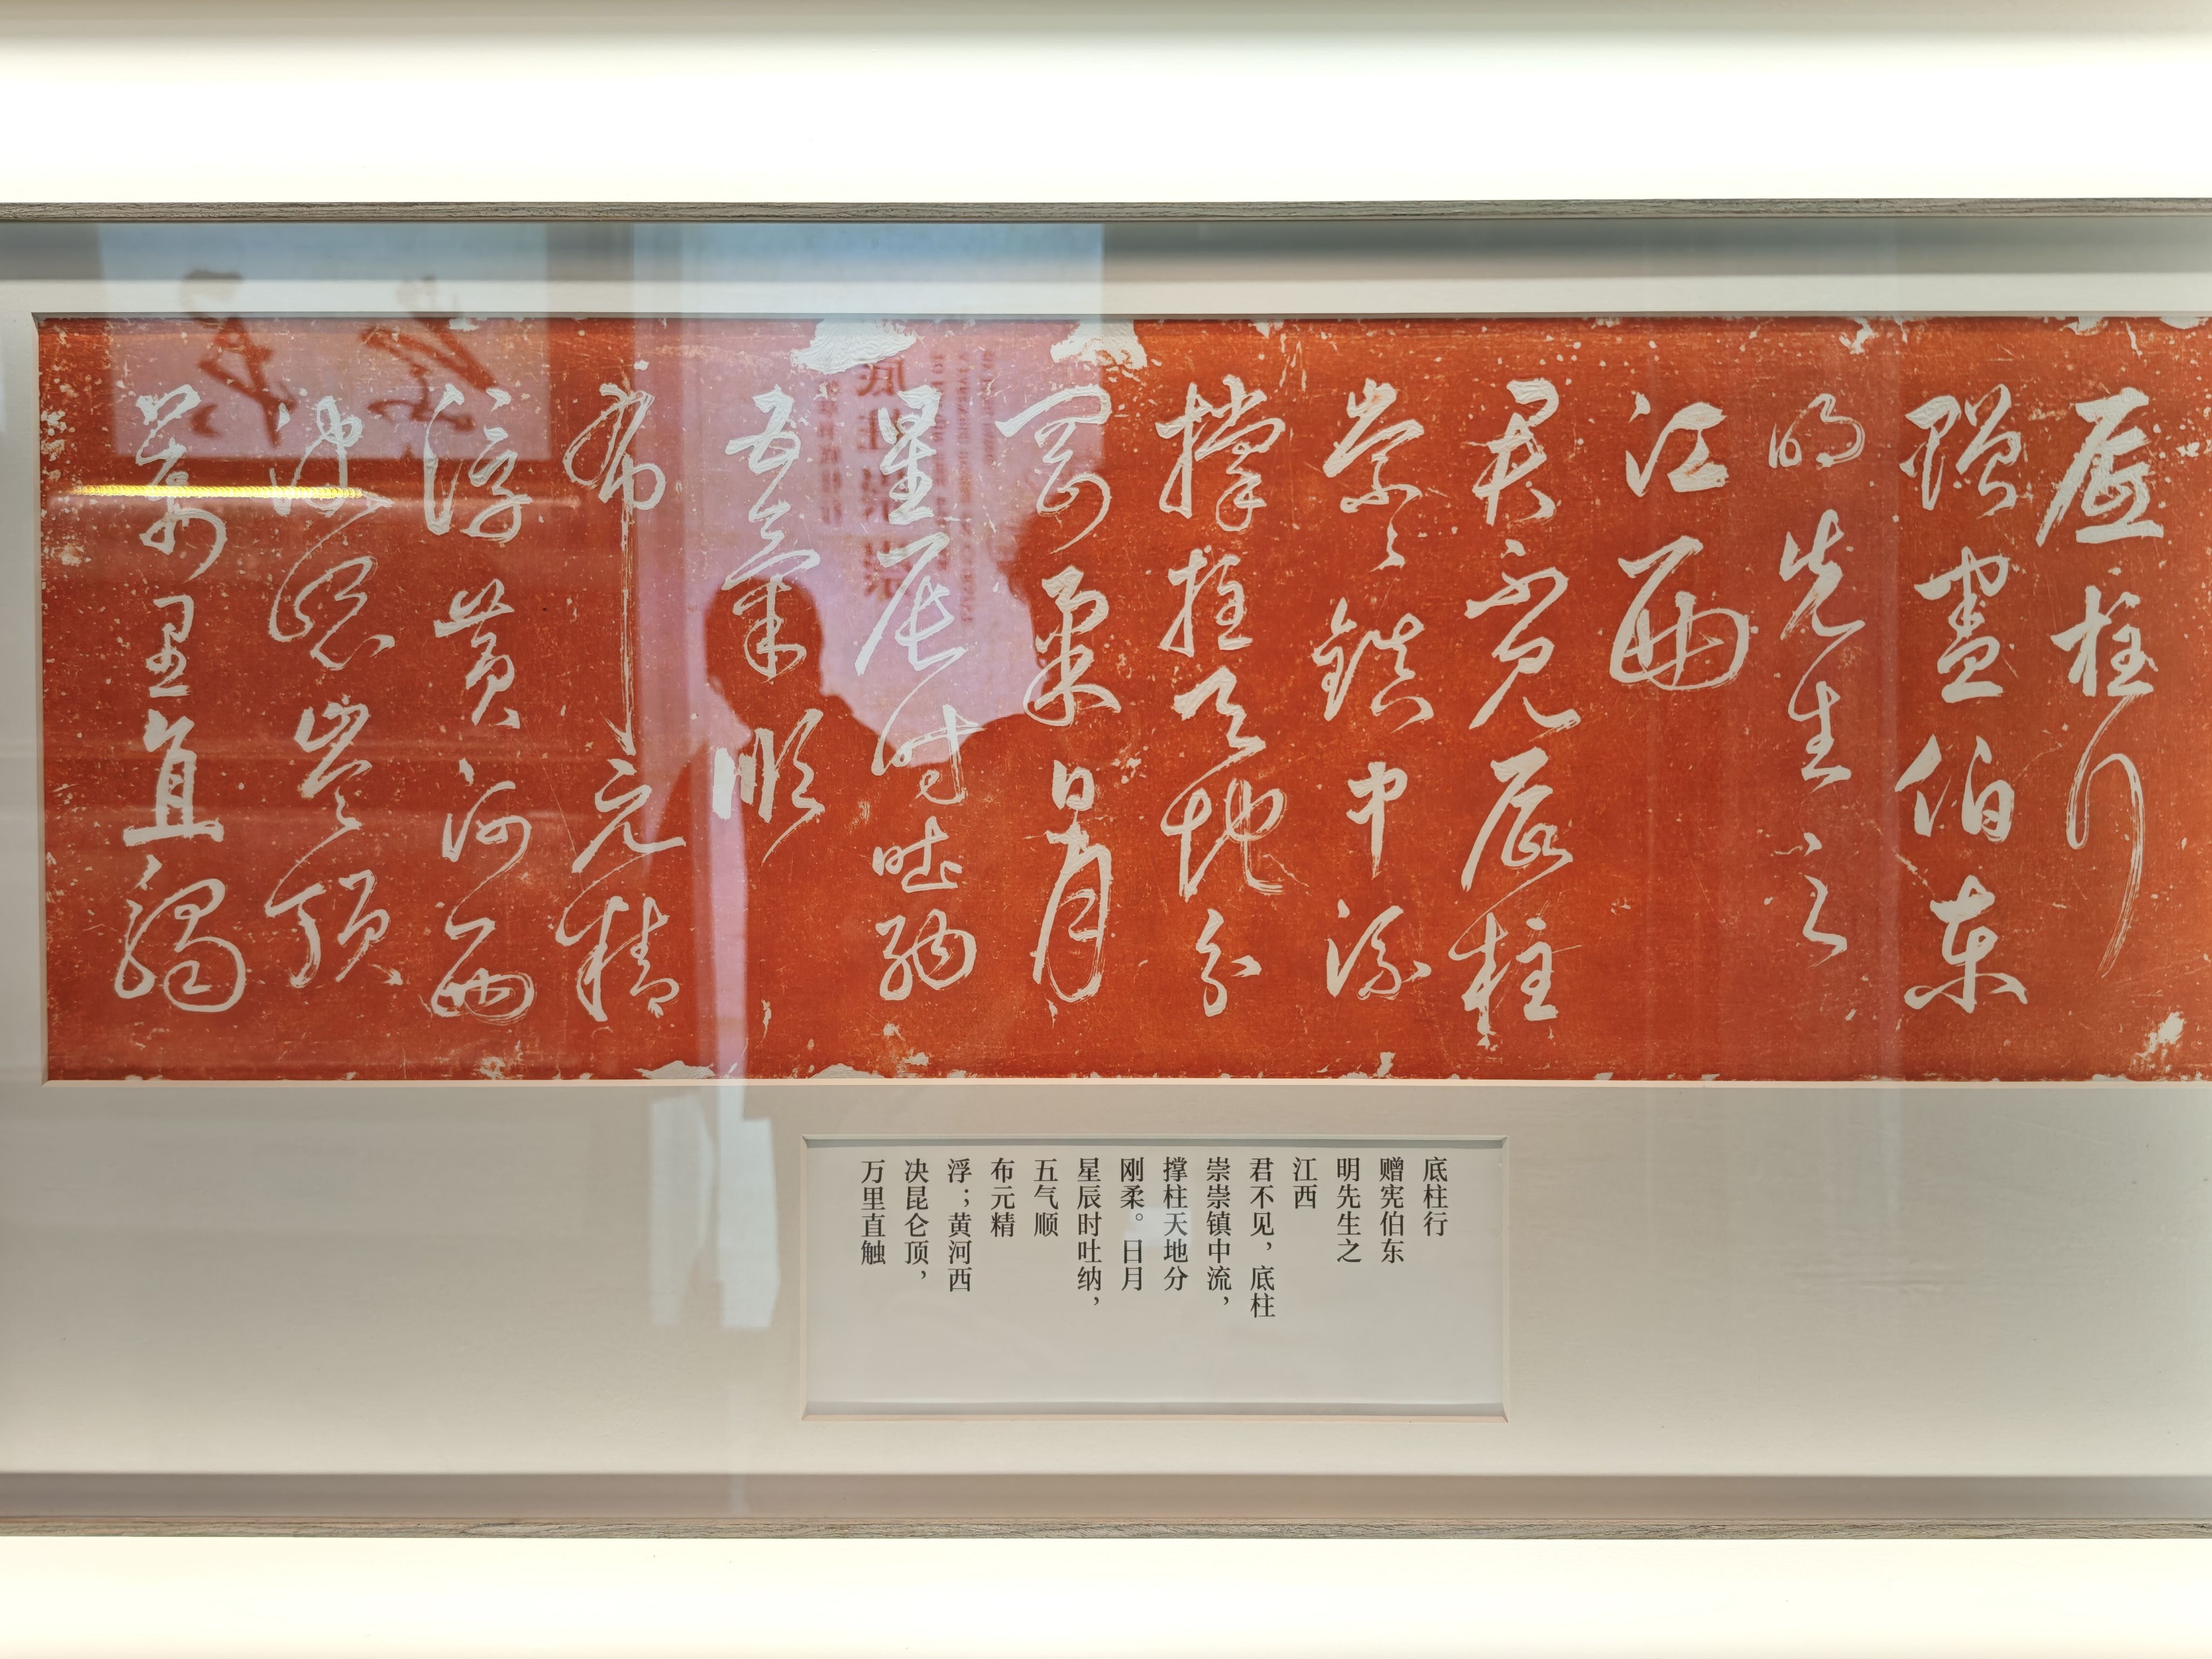 底柱行
贈憲伯東
明先生之
江西
君不見底柱
崇崇鎮中流
撑拄天地分
剛柔日月
星辰時吐納
五氣順
布元精
浮黄河西
決崑崙頂
萬里直觸
底柱行
赠宪伯东
明先生之
江西
君不见，底柱
崇崇镇中流，
撑柱天地分
刚柔。日月
星辰时吐纳，
五气顺
布元精
浮；黄河西
决昆仑顶，
万里直触